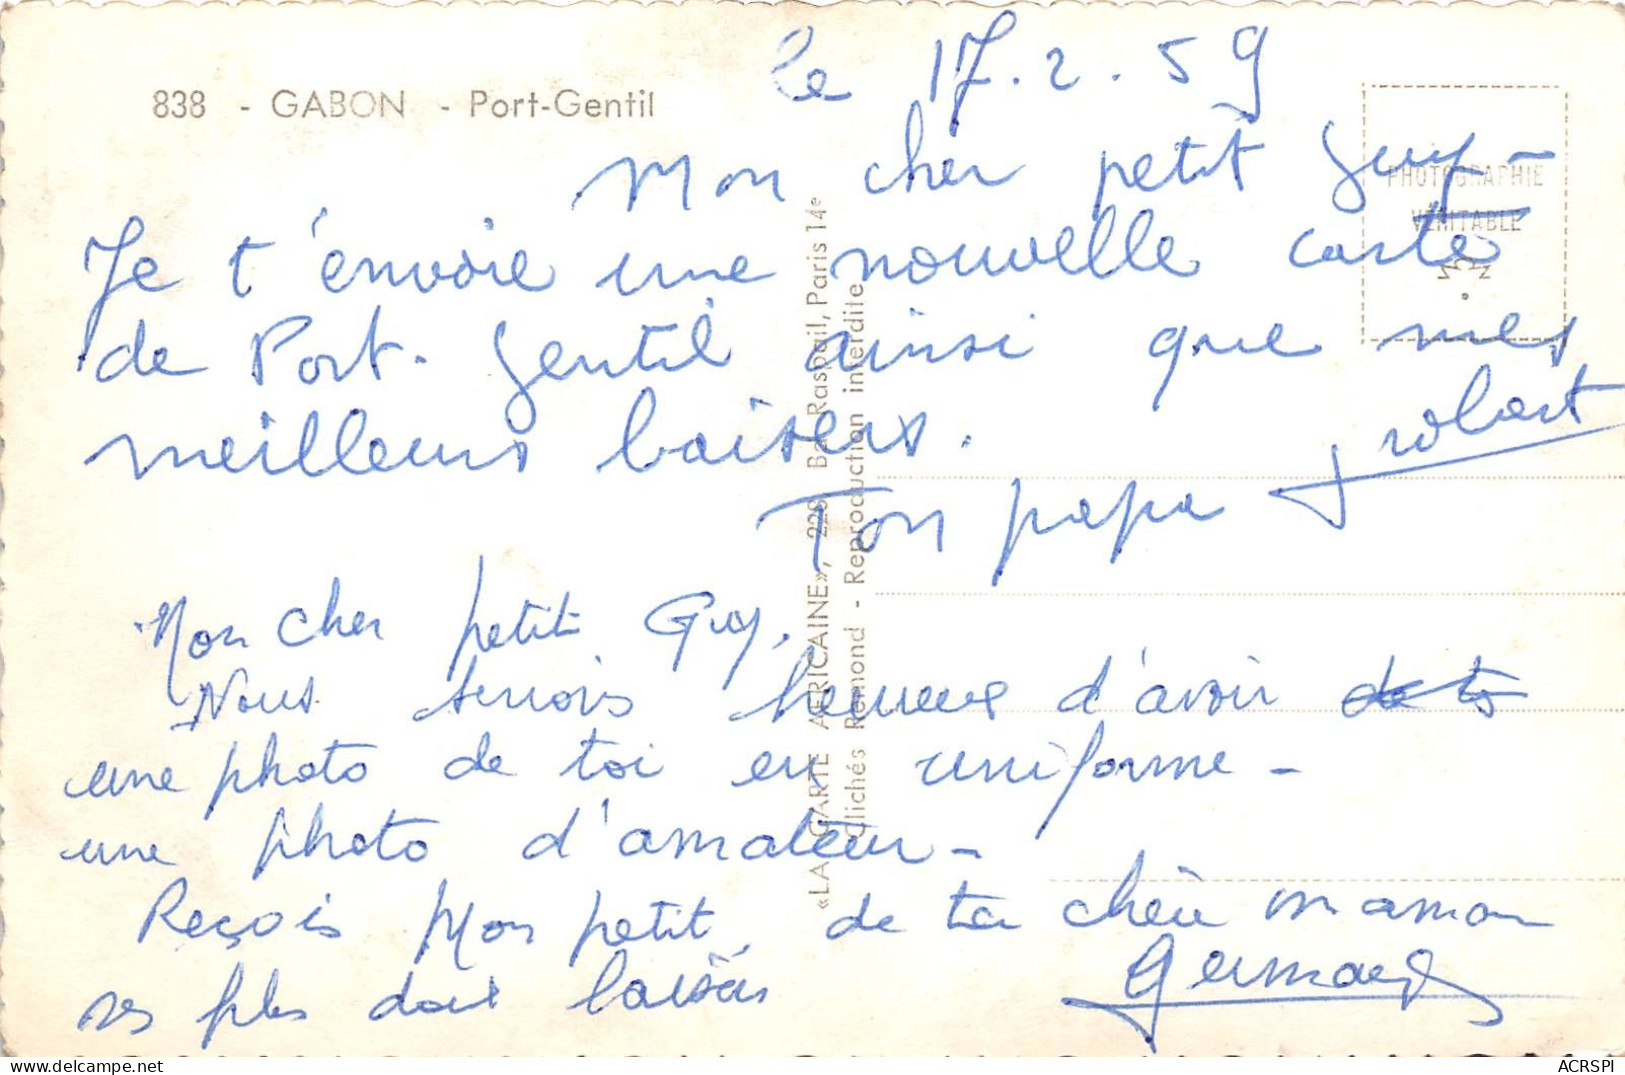 838 - GABON - Port-Gentil
le 17.2.59
Mon cher petit Guy -
Je t'envoie une nouvelle carte
de Port-Gentil ainsi que mes
meilleurs baisers.
Ton papa
Mon cher petit Guy.
Nous serions heureux d'avoir
une photo de toi en uniforme -
une photo d'amateur -
Reçois Mon petit, de ta chère maman
ses plus doux baisers
PHOTOGRAPHIE
VÉRITABLE
«LA CARTE AFRICAINE», 228 Bd Raspail, Paris 14e
Clichés Remond - Reproduction interdite
ACRSPI